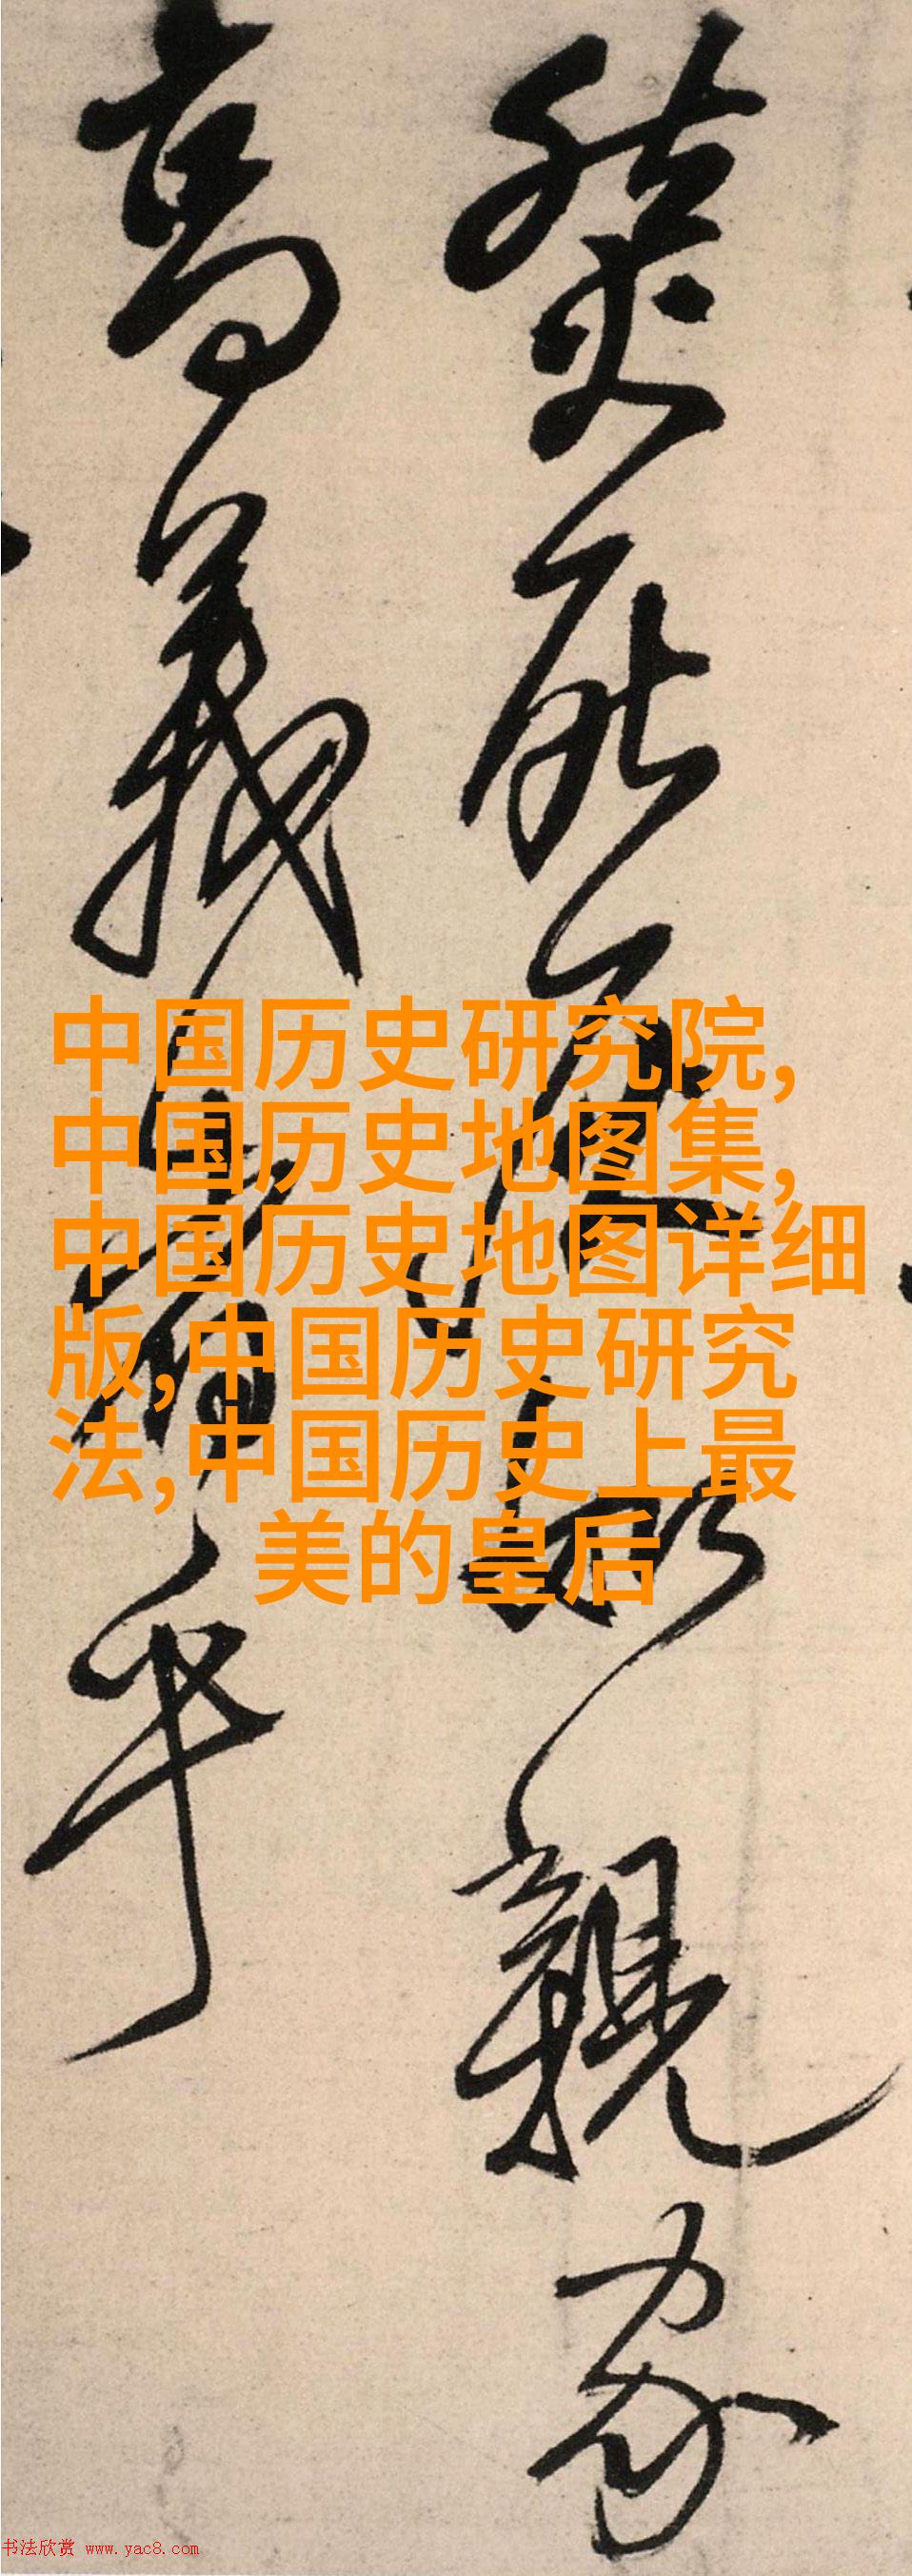 登死友如親家
高義者乎
中国历史研究院,
中国历史地图集,
中国历史地图详细
版,中国历史研究
法,中国历史上最
美的皇后
书法欣赏 www.yac8.com